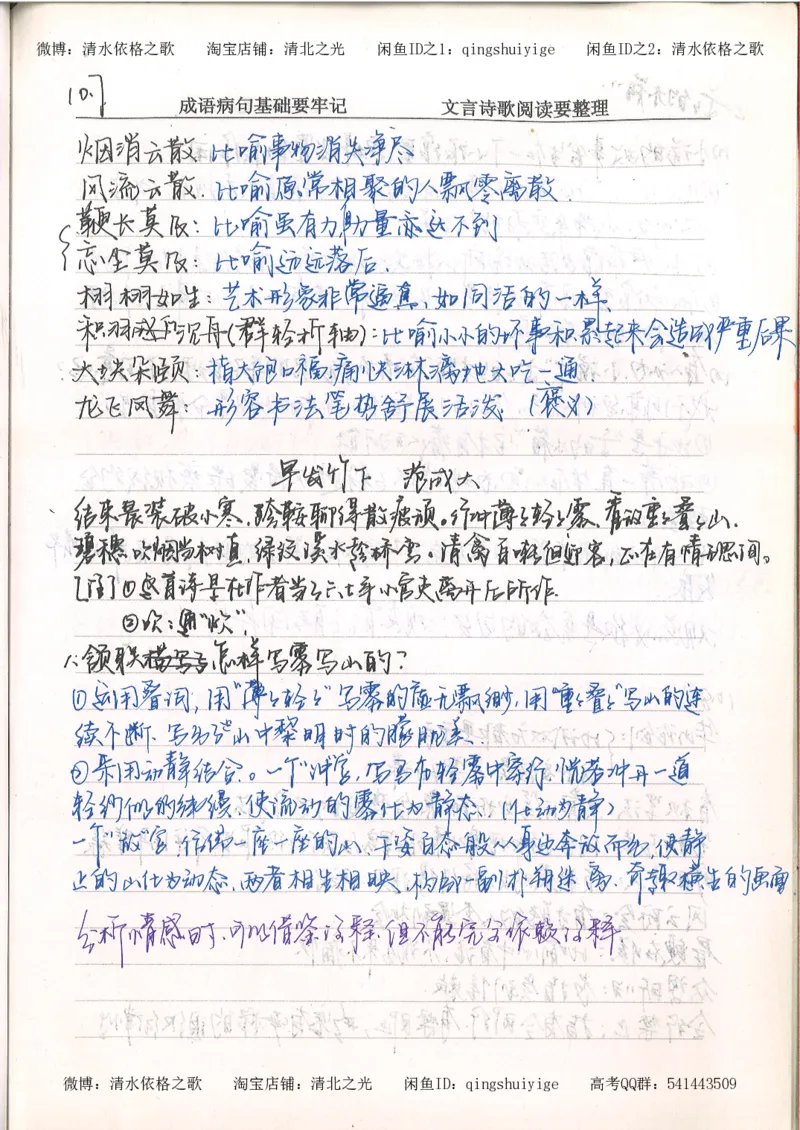 微博：清水依格之歌 淘宝店铺：清北之光 闲鱼ID之1：qingshuiyige 闲鱼ID之2：清水依格之歌
10.7
成语病句基础要牢记 文言诗歌阅读要整理
烟消云散：比喻事物消失净尽
风流云散：比喻原常相聚的人飘零离散
鞭长莫及：比喻虽有力，力量亦达不到
望尘莫及：比喻远远落后．
栩栩如生：艺术形象非常逼真，如同活的一样．
积羽沉舟（群轻折轴）：比喻小小的坏事积累起来会造成严重后果
大块朵颐：指大饱口福，痛快淋漓地大吃一通．
龙飞凤舞：形容书法笔势舒展活泼 （褒义）
早发竹下 范成大
结束晨装破小寒，跨鞍聊得散疲顽。行冲薄薄轻轻雾，看放重重叠叠山．
碧穗吹烟当树直，绿纹溪水趁桥弯。清禽百啭似迎客，正在有情无思间。
[注]①此首诗是在作者当了六七年小官吏离开后所作．
②吹：通“炊”．
1．颔联描写了怎样写雾写山的？
①运用叠词，用“薄薄轻轻”写雾的质无飘缈，用“重重叠叠”写山的连
续不断．写出了山中黎明时的朦胧美．
②采用动静结合。一个“冲”字，写穿行轻雾中穿行，恍若冲开一道
轻纱似的缭绕，使流动的雾化为静态．（化动为静）
一个“放”字，仿佛一座一座的山，千姿百态般从身边奔放而出，使静
止的山化为动态，两者相生相映，构成一副扑朔迷离、奇趣横生的画面
分析情感时，可以借鉴注释，但不能完全依赖注释
微博：清水依格之歌 淘宝店铺：清北之光 闲鱼ID：qingshuiyige 高考QQ群：541443509